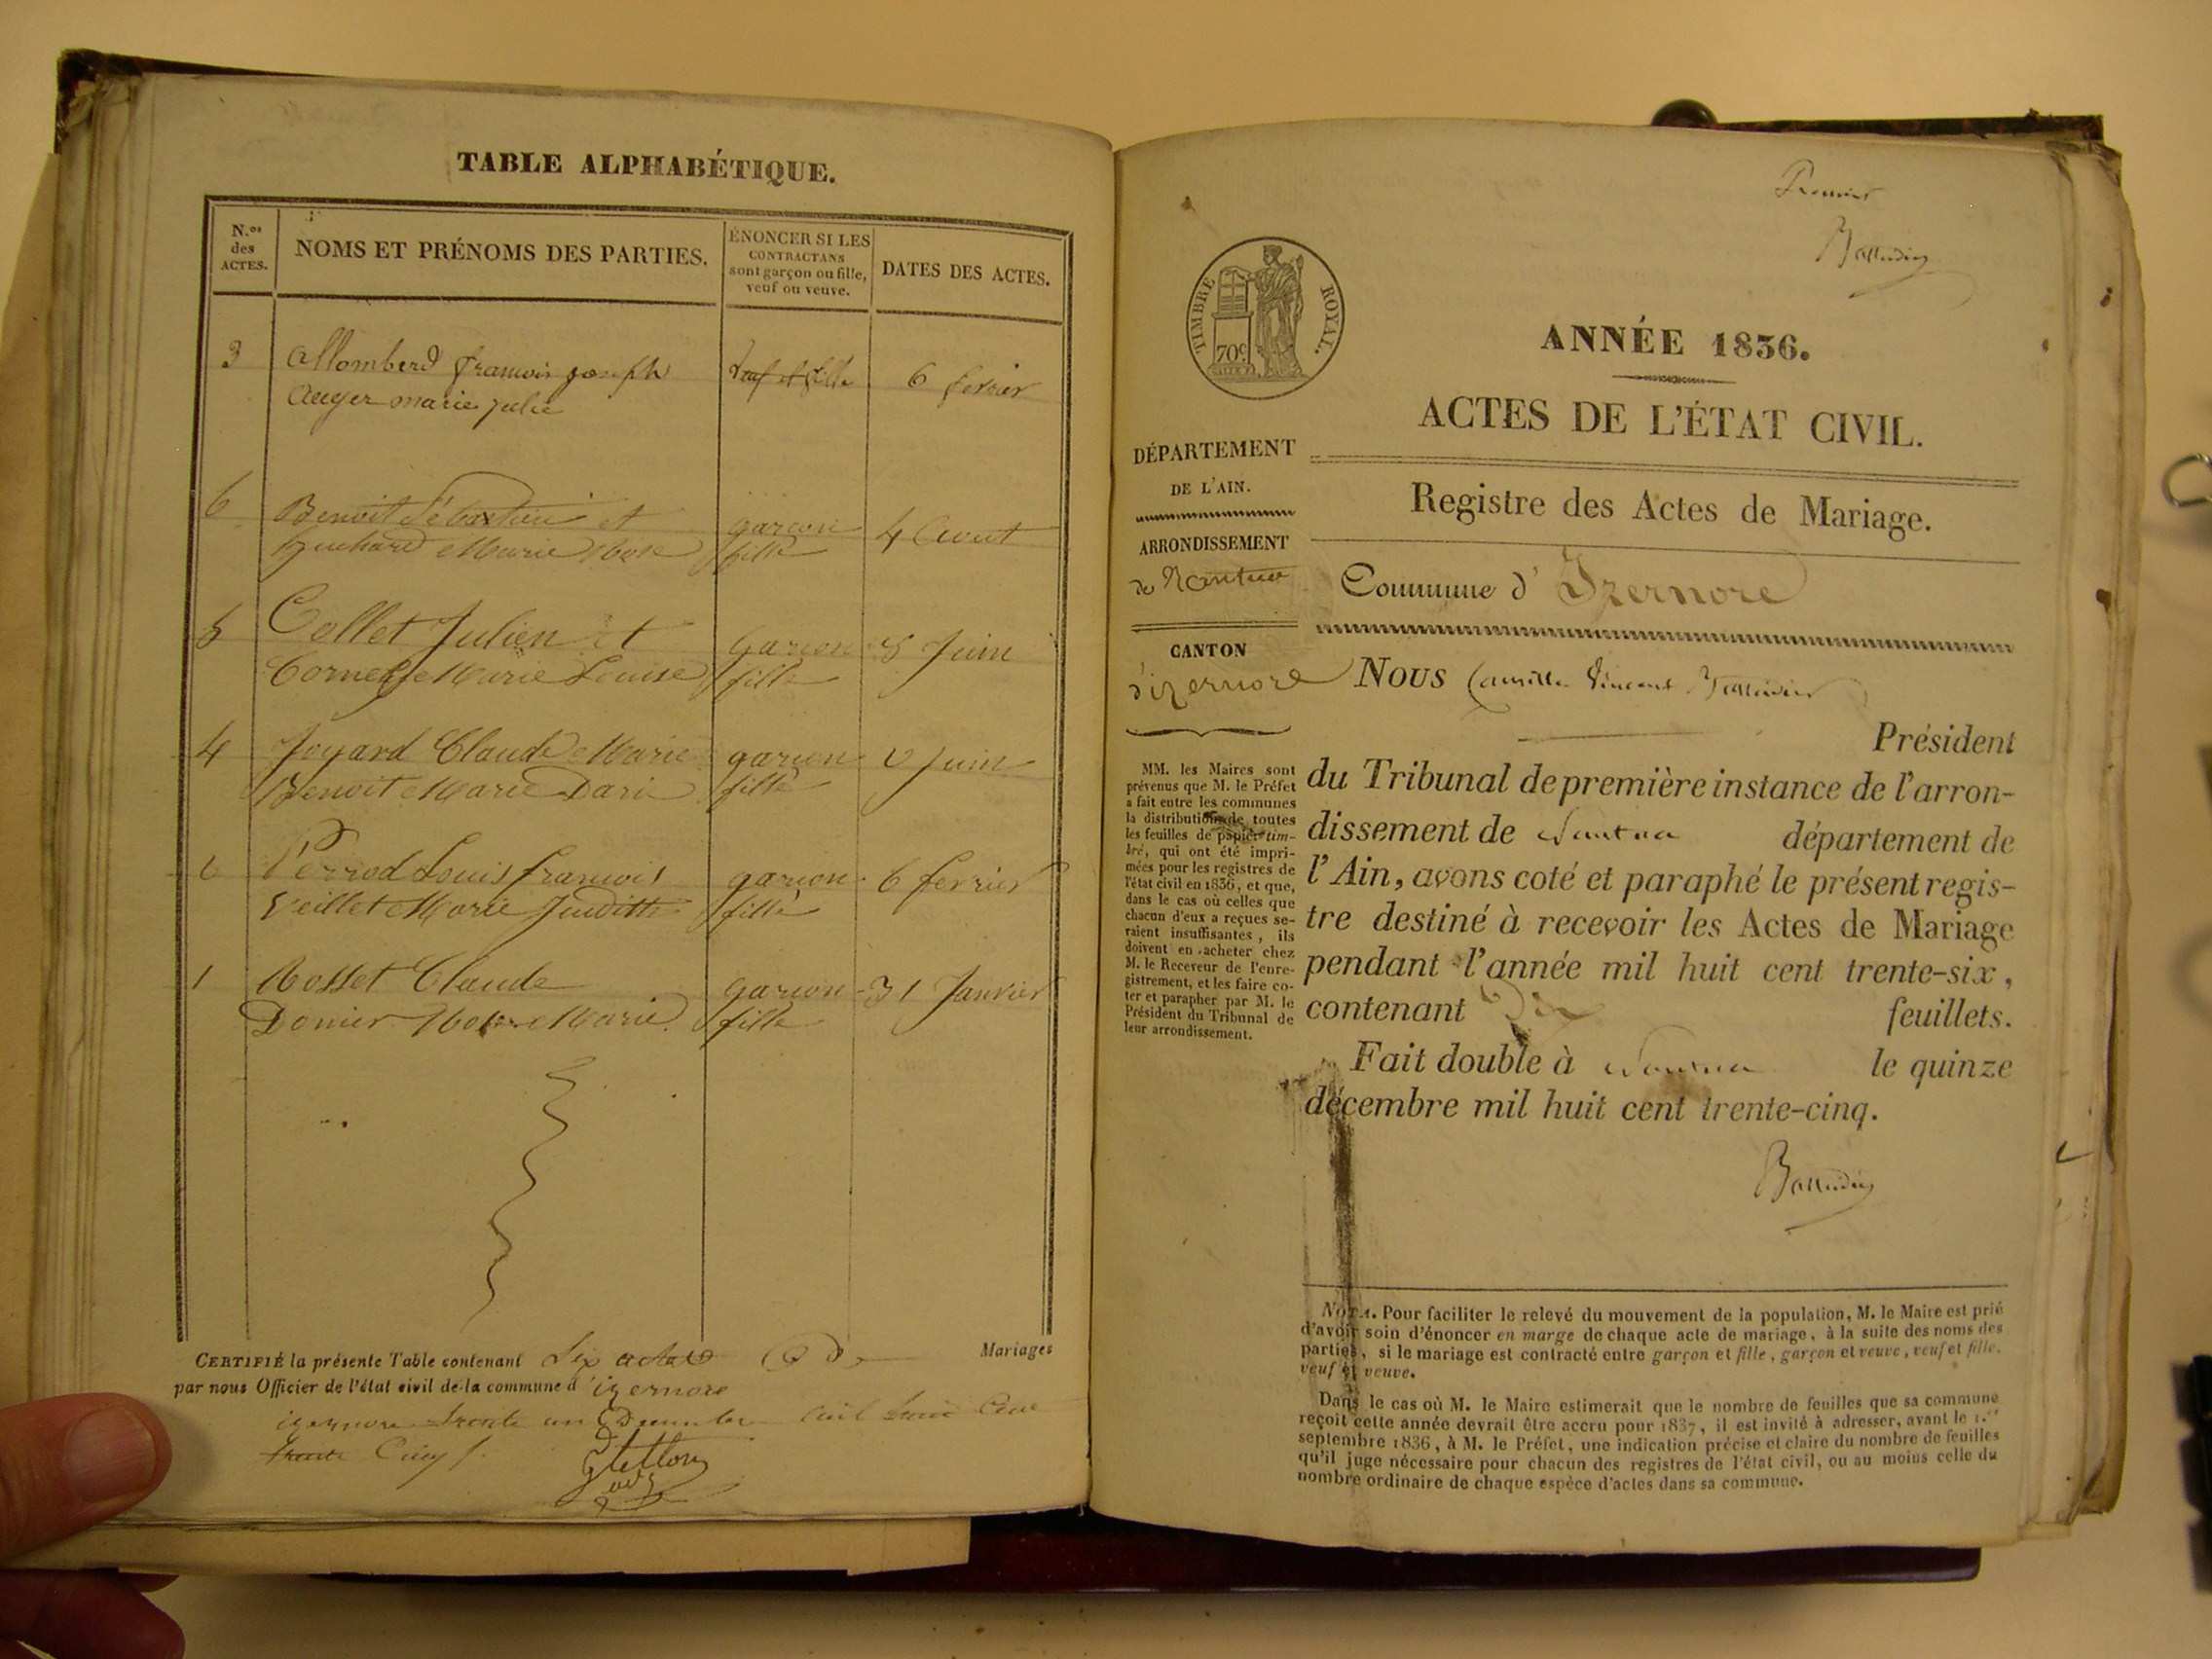 TABLE ALPHABÉTIQUE.
N.os des ACTES.
NOMS ET PRÉNOMS DES PARTIES.
ÉNONCER SI LES
CONTRACTANS
sont garçon ou fille,
veuf ou veuve.
DATES DES ACTES.
3 Allomberd francois joseph veuf et fille 6 fevrier
Auger marie julie
6 Benoit Sébastien et garcon 4 Aout
Marie Rose fille
5 Collet Julien Et garcon 5 Juin
Cornet Marie Louise fille
4 Joyard Claude Marie garcon Juin
Benoit Marie fille
Perrod Louis francois garcon 6 fevrier
Veillet Marie Juditte fille
1 Rosset Claude garcon 31 Janvier
Donier Marie fille
CERTIFIÉ la présente Table contenant Six actes de Mariages
par nous Officier de l'état civil de la commune d'izernore
izernore trente un Decembre mil huit Cent
trente Cinq
Premier
Ballidier
TIMBRE ROYAL.
70c
ANNÉE 1836.
ACTES DE L'ÉTAT CIVIL.
DÉPARTEMENT
DE L'AIN.
Registre des Actes de Mariage.
ARRONDISSEMENT
de Nantua
Commune d'Izernore
CANTON
d'izernore
Nous Camille Vincent
Président
du Tribunal de première instance de l'arron-
dissement de Nantua département de
l'Ain, avons coté et paraphé le présent regis-
tre destiné à recevoir les Actes de Mariage
pendant l'année mil huit cent trente-six,
contenant Dix feuillets.
Fait double à Nantua le quinze
décembre mil huit cent trente-cinq.
MM. les Maires sont
prévenus que M. le Préfet
a fait entre les communes
la distribution de toutes
les feuilles de papier tim-
bré, qui ont été impri-
mées pour les registres de
l'état civil en 1836, et que,
dans le cas où celles que
chacun d'eux a reçues se-
raient insuffisantes, ils
doivent en acheter chez
M. le Receveur de l'enre-
gistrement, et les faire co-
ter et parapher par M. le
Président du Tribunal de
leur arrondissement.
NOTA. Pour faciliter le relevé du mouvement de la population, M. le Maire est prié
d'avoir soin d'énoncer en marge de chaque acte de mariage, à la suite des noms des
parties, si le mariage est contracté entre garçon et fille, garçon et veuve, veuf et fille,
veuf et veuve.
Dans le cas où M. le Maire estimerait que le nombre de feuilles que sa commune
reçoit cette année devrait être accru pour 1837, il est invité à adresser, avant le 1.er
septembre 1836, à M. le Préfet, une indication précise et claire du nombre de feuilles
qu'il juge nécessaire pour chacun des registres de l'état civil, ou au moins celle du
nombre ordinaire de chaque espèce d'actes dans sa commune.